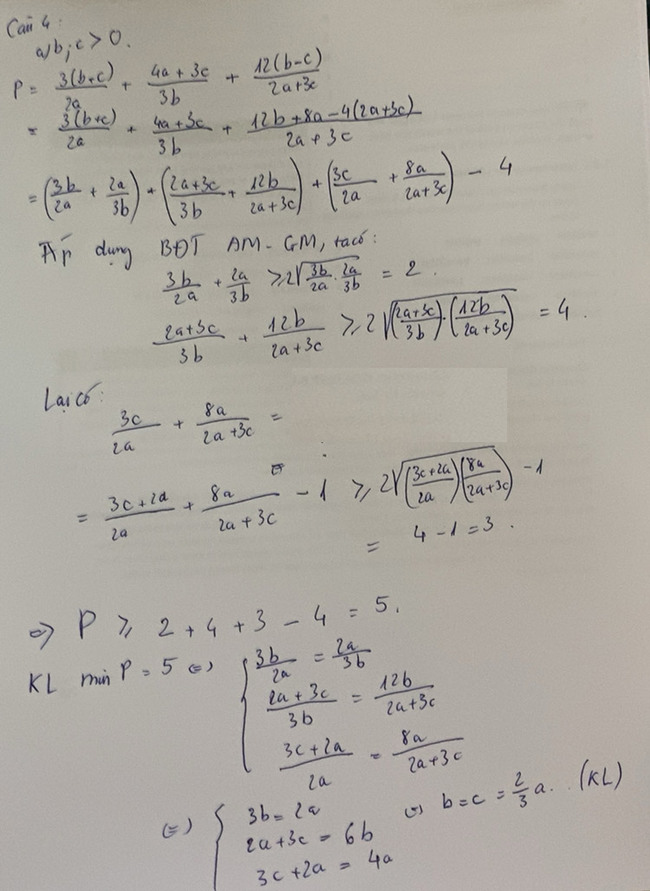 Câu 4:
a, b, c > 0.
P = 3(b+c)/2a + 4a+3c/3b + 12(b-c)/2a+3c
= 3(b+c)/2a + 4a+3c/3b + 12b+8a-4(2a+3c)/2a+3c
= (3b/2a + 2a/3b) + (2a+3c/3b + 12b/2a+3c) + (3c/2a + 8a/2a+3c) - 4
Áp dụng BĐT AM-GM, ta có:
3b/2a + 2a/3b ≥ 2√(3b/2a . 2a/3b) = 2.
2a+3c/3b + 12b/2a+3c ≥ 2√((2a+3c/3b).(12b/2a+3c)) = 4.
Lại có:
3c/2a + 8a/2a+3c =
= 3c+2a/2a + 8a/2a+3c - 1 ≥ 2√((3c+2a/2a)(8a/2a+3c)) - 1
= 4 - 1 = 3.
=> P ≥ 2 + 4 + 3 - 4 = 5.
KL min P = 5 <=> { 3b/2a = 2a/3b
2a+3c/3b = 12b/2a+3c
3c+2a/2a = 8a/2a+3c
<=> { 3b = 2a
2a+3c = 6b
3c+2a = 4a
<=> b = c = 2/3 a. (KL)